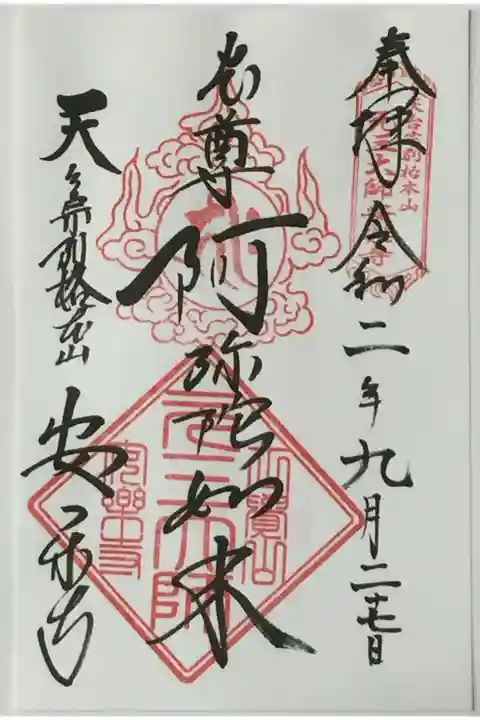 奉拝 令和二年九月二十七日
本尊 阿弥陀如来
天台宗別格本山 安楽寺
天台宗別格本山
元三大師
安樂寺